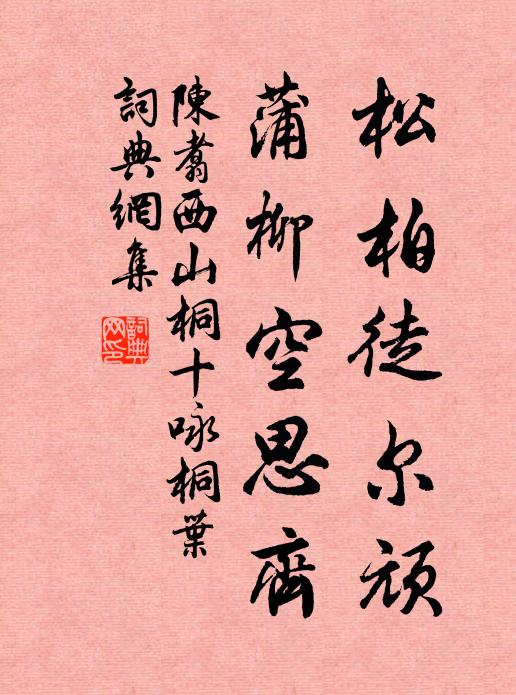 松柏徒尔頑
蒲柳空思齊
陳翥西山桐十咏桐葉
詞典網集
詞典網印